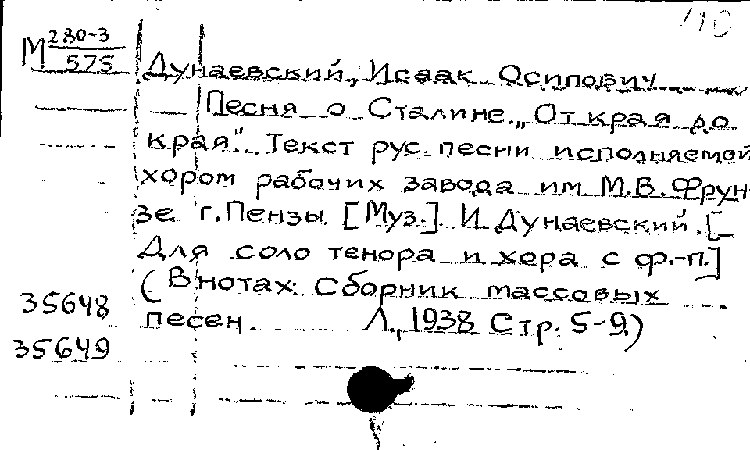 110
М 280-3
575
Дунаевский, Исаак Осипович
Песня о Сталине. „От края до
края". Текст рус. песни исполняемой
хором рабочих завода им М.В. Фрун-
зе г. Пензы. [Муз.] И Дунаевский. [
Для соло тенора и хора с ф.-п.]
(В нотах: Сборник массовых
35648 песен. Л., 1938 Стр. 5-9)
35649